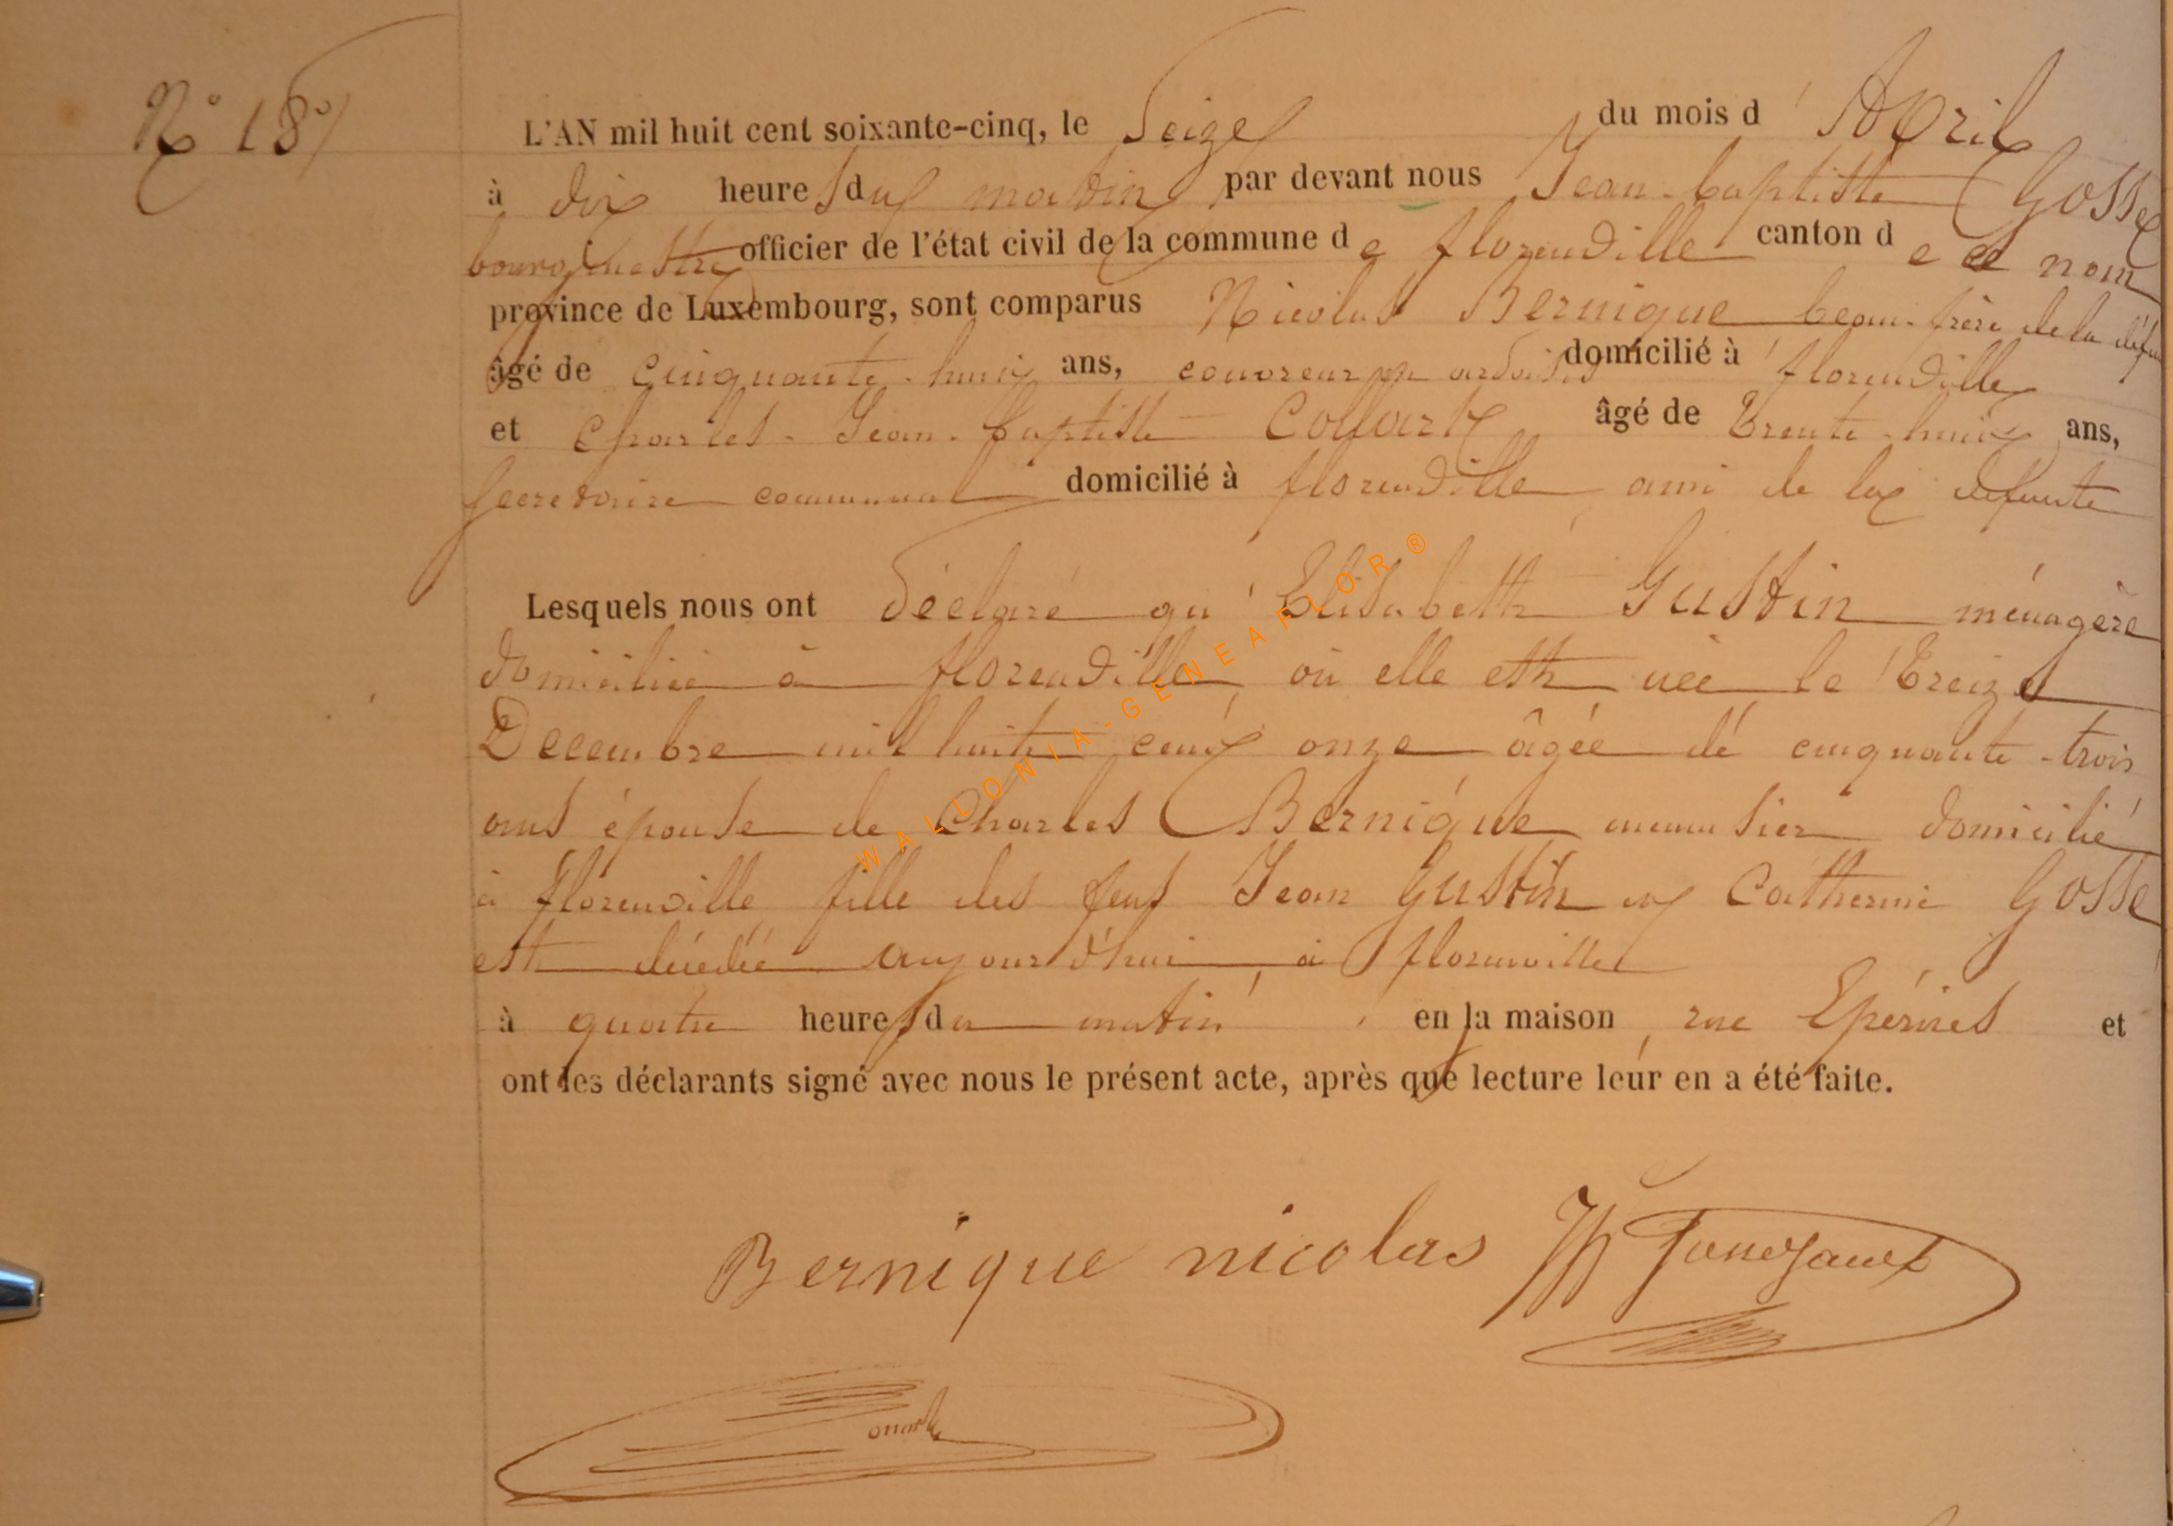 N° 18
L'AN mil huit cent soixante-cinq, le Seize du mois d'Avril
à dix heures du matin par devant nous Jean-baptiste Gosse
bourgmestre officier de l'état civil de la commune de florenville canton de ce nom
province de Luxembourg, sont comparus Nicolas Bernique beau-frère de la
âgé de cinquante-huit ans, couvreur en ardoises domicilié à florenville
et Charles-Jean-baptiste Collart âgé de trente-huit ans,
secretaire communal domicilié à florenville ami de la defunte
Lesquels nous ont déclaré qu'Elisabeth Gustin ménagère
domiciliée à florenville où elle est née le treize
Decembre mil huit cent onze âgée de cinquante-trois
ans épouse de Charles Bernique menuisier domicilié
à florenville fille des feus Jean Gustin et Catherine Gosse
est décédée aujourd'hui à florenville
à quatre heures du matin en la maison rue et
ont les déclarants signé avec nous le présent acte, après que lecture leur en a été faite.
Bernique nicolas
WALLONIA-GENEAFLOR®